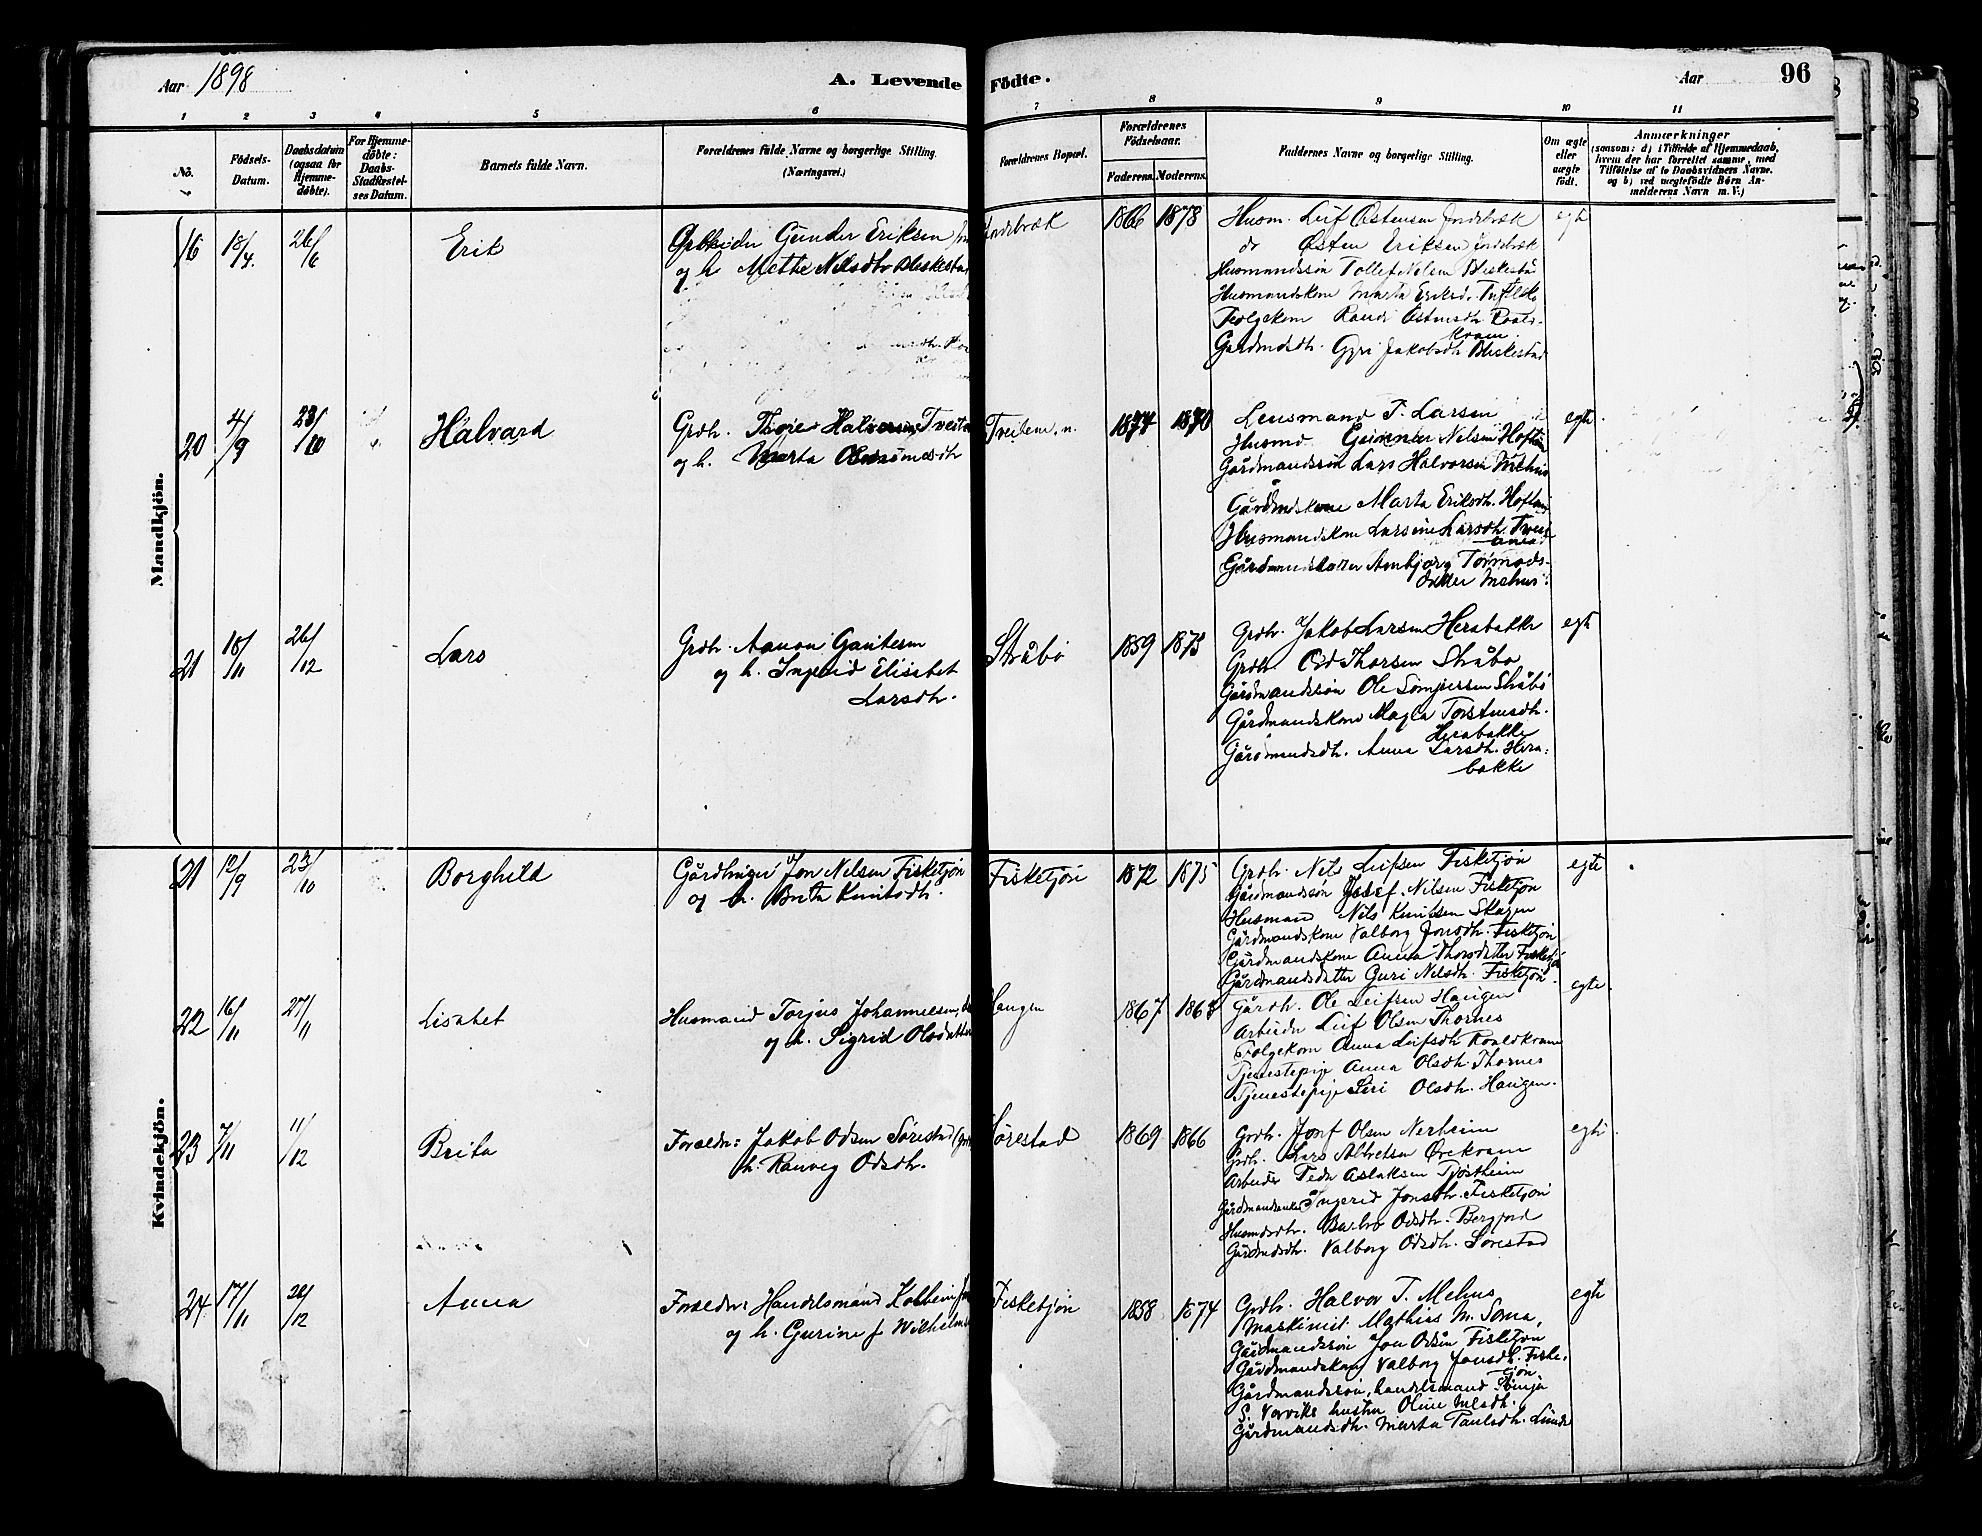 Aar 1898
A. Levende Fødte.
Aar
96
1 2 3 4 5 6 7 8 9 10 11
No.
Fødsels-Datum.
Daabsdatum (ogsaa for Hjemmedøbte).
For Hjemmedøbte: Daabs-Stadfæstelses Datum.
Barnets fulde Navn.
Forældrenes fulde Navne og borgerlige Stilling. (Næringsvei.)
Forældrenes Bopæl.
Forældrenes Fødselsaar.
Faderens. Moderens.
Faddernes Navne og borgerlige Stilling.
Om ægte eller uægte født.
Anmærkninger
(saasom: a) i Tilfælde af Hjemmedaab,
hvem der har forrettet samme, med
Tilføielse af to Daabsvidners Navne,
og b) ved uægtefødte Børn Anmelderens Navn m. V.)
Mandkjøn.
16 18/4. 26/6 Erik
Gunder Eriksen
og h. Mette Nilsdtr Bleskestad
Indrebræk 1866 1878
Husm. Leif Østensen Indrebræk
do Østen Eriksen Indrebræk
Husmandssøn Tollef Nilsen Bleskestad
Husmandskone Marta Eriksd.
Folgekom Randi Østensdtr. Roalds-
kvam.
Gardmdsdtr. Gyri Jakobsdtr Bleskestad
egte
20 4/9 23/10 Halvard
Grdbr. Halvorsen Tveita
og h. Marta
Tveitene, n. 1874 1870
Lensmand T. Larsen
Husmd Gunnar Nilsen
Gårdmandssøn Lars Halvorsen Mehus
Gårdmdskone Marta Eriksdtr.
Husmandskone Larsine Larsdtr.
Gårdmandsdatter Arnbjørg Tormods-
datter Mehus.
egte.
21 18/11 26/12 Lars
Grdbr. Aamon Gautesen
og h. Ingerid Elisabet
Larsdtr.
Stråbø 1859 1873
Grdbr. Jakob Larsen Herabakke
Grdbr. Od Thorsen Stråbø
Gårdmandssøn Ole Stråbø
Gårdmandskone Magla Torstensdtr.
Herabakke
Gårdmandsdtr. Anna Larsdtr. Hera-
bakke
egte
Kvindekjøn.
21 12/9 23/10 Borghild
Gårdbruger Jon Nilsen Fisketjøn
og h. Brita Knutsdtr.
Fisketjøn 1872 1875
Grdbr. Nils Leifsen Fisketjøn
Gårdmandssøn Josef. Nilsen Fisketjøn
Husmand Nils Knutsen Skagen
Gårdmandskone Valborg Jonsdtr. Fisketjøn
Gårdmandskone Anna Thorsdatter Fisketjøn
Gårdmandsdatter Guri Nilsdtr. Fisketjøn.
egte
22 16/11 27/11 Lisabet
Husmand Torjus Johannessen,
og h. Sigrid Olsdatter
Haugen 1867
Gårdbr. Ole Leifsen Haugen
Arbeider Leif Olsen Thornes
Folgekom Anna Leifsdtr Roaldkvam
Tjenestepige Anna Olsdtr. Thornes
Tjenestepige Siri Olsdtr. Haugen.
egte.
23 7/11 11/12 Brita
Forældre: Jakob Odsen Sørestad
h. Ranveig Odsdtr.
Sørestad 1869 1866
Grdbr. Josef Olsen Nerheim
Grdbr. Lars Albretsen Ørekvam
Arbeider Peder Aslaksen Tjøstheim
Gårdmandsenke Ingerid Jonsdtr. Fisketjøn
Husmdsdtr. Barbro Odsdtr. Bergjord
Gårdmdsdtr. Valborg Odsdtr. Sørestad
egte.
24 17/11 26/12 Anna
Forældre: Handelsmand Kolbein
og h. Gurine f. Wilhelms
Fisketjøn 1858 1874
Grdbr. Halvor T. Mehus
Maskinist Mathias M. Soma,
Gårdmandssøn Jon Odsen Fisketjøn
Gårdmandskone Valborg Jonsdtr. Fiske-
tjøn
Gårdmandssøn, handelsmand
S. Vorviks hustru Oline
Gårdmandsdtr. Marta Paulsdtr. Lunde
egte